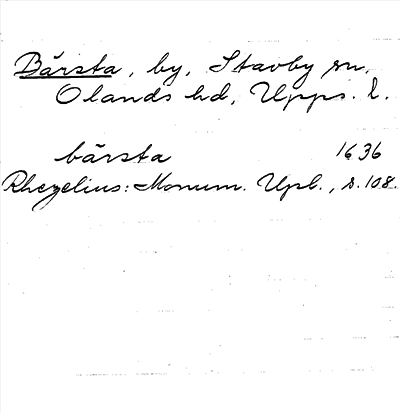 Bärsta, by, Stavby sn.
Olands hd, Upps. l.
bärsta 1636
Rhezelius: Monum. Upl., s. 108.